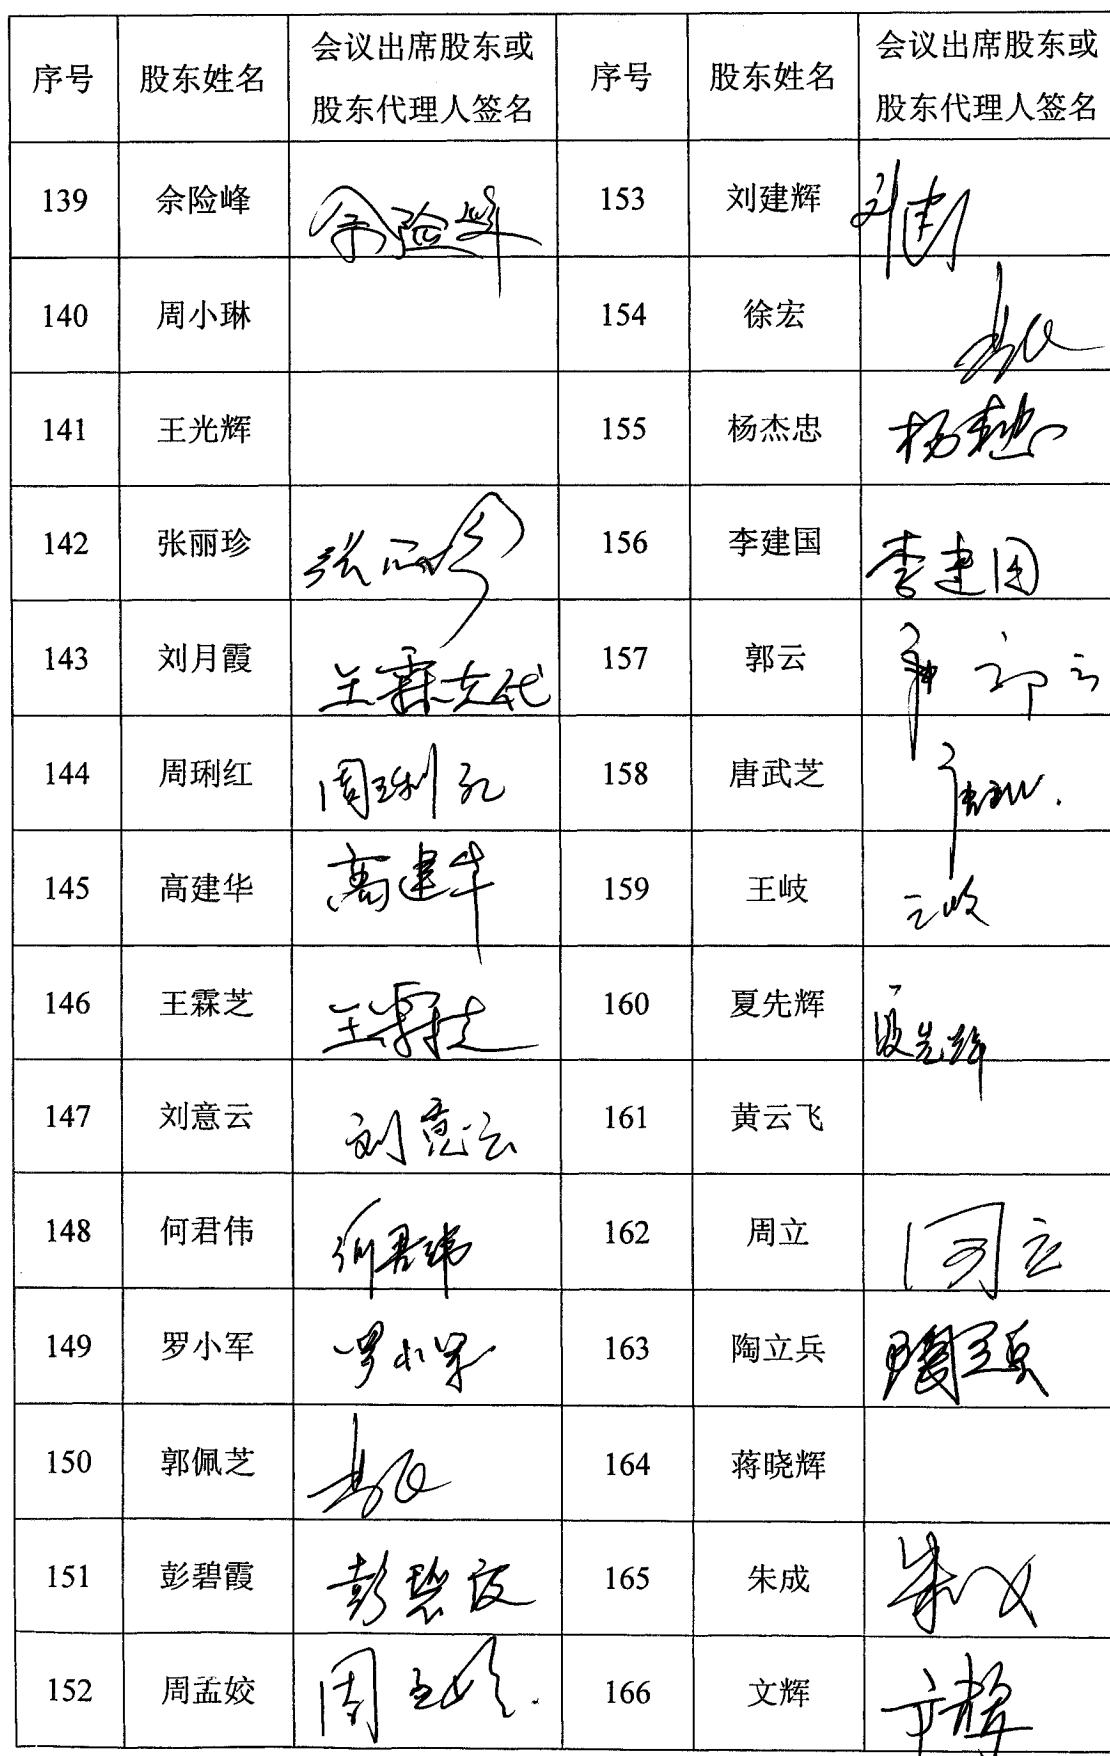 序号 股东姓名 会议出席股东或股东代理人签名 序号 股东姓名 会议出席股东或股东代理人签名
139 佘险峰 佘险峰 153 刘建辉
140 周小琳 154 徐宏
141 王光辉 155 杨杰忠 杨杰忠
142 张丽珍 张丽珍 156 李建国 李建国
143 刘月霞 王霖芝代 157 郭云 郭云
144 周琍红 周琍红 158 唐武芝
145 高建华 高建华 159 王岐 王岐
146 王霖芝 王霖芝 160 夏先辉 夏先辉
147 刘意云 刘意云 161 黄云飞
148 何君伟 何君伟 162 周立 周立
149 罗小军 罗小军 163 陶立兵 陶立兵
150 郭佩芝 164 蒋晓辉
151 彭碧霞 彭碧霞 165 朱成 朱成
152 周孟姣 周孟姣 166 文辉 文辉